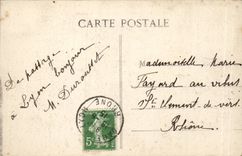 CARTE POSTALE
De passage
à Lyon bonjour
M. Durousset
Mademoiselle Marie
Fayard au
St Clément de
Rhône
RHONE
5